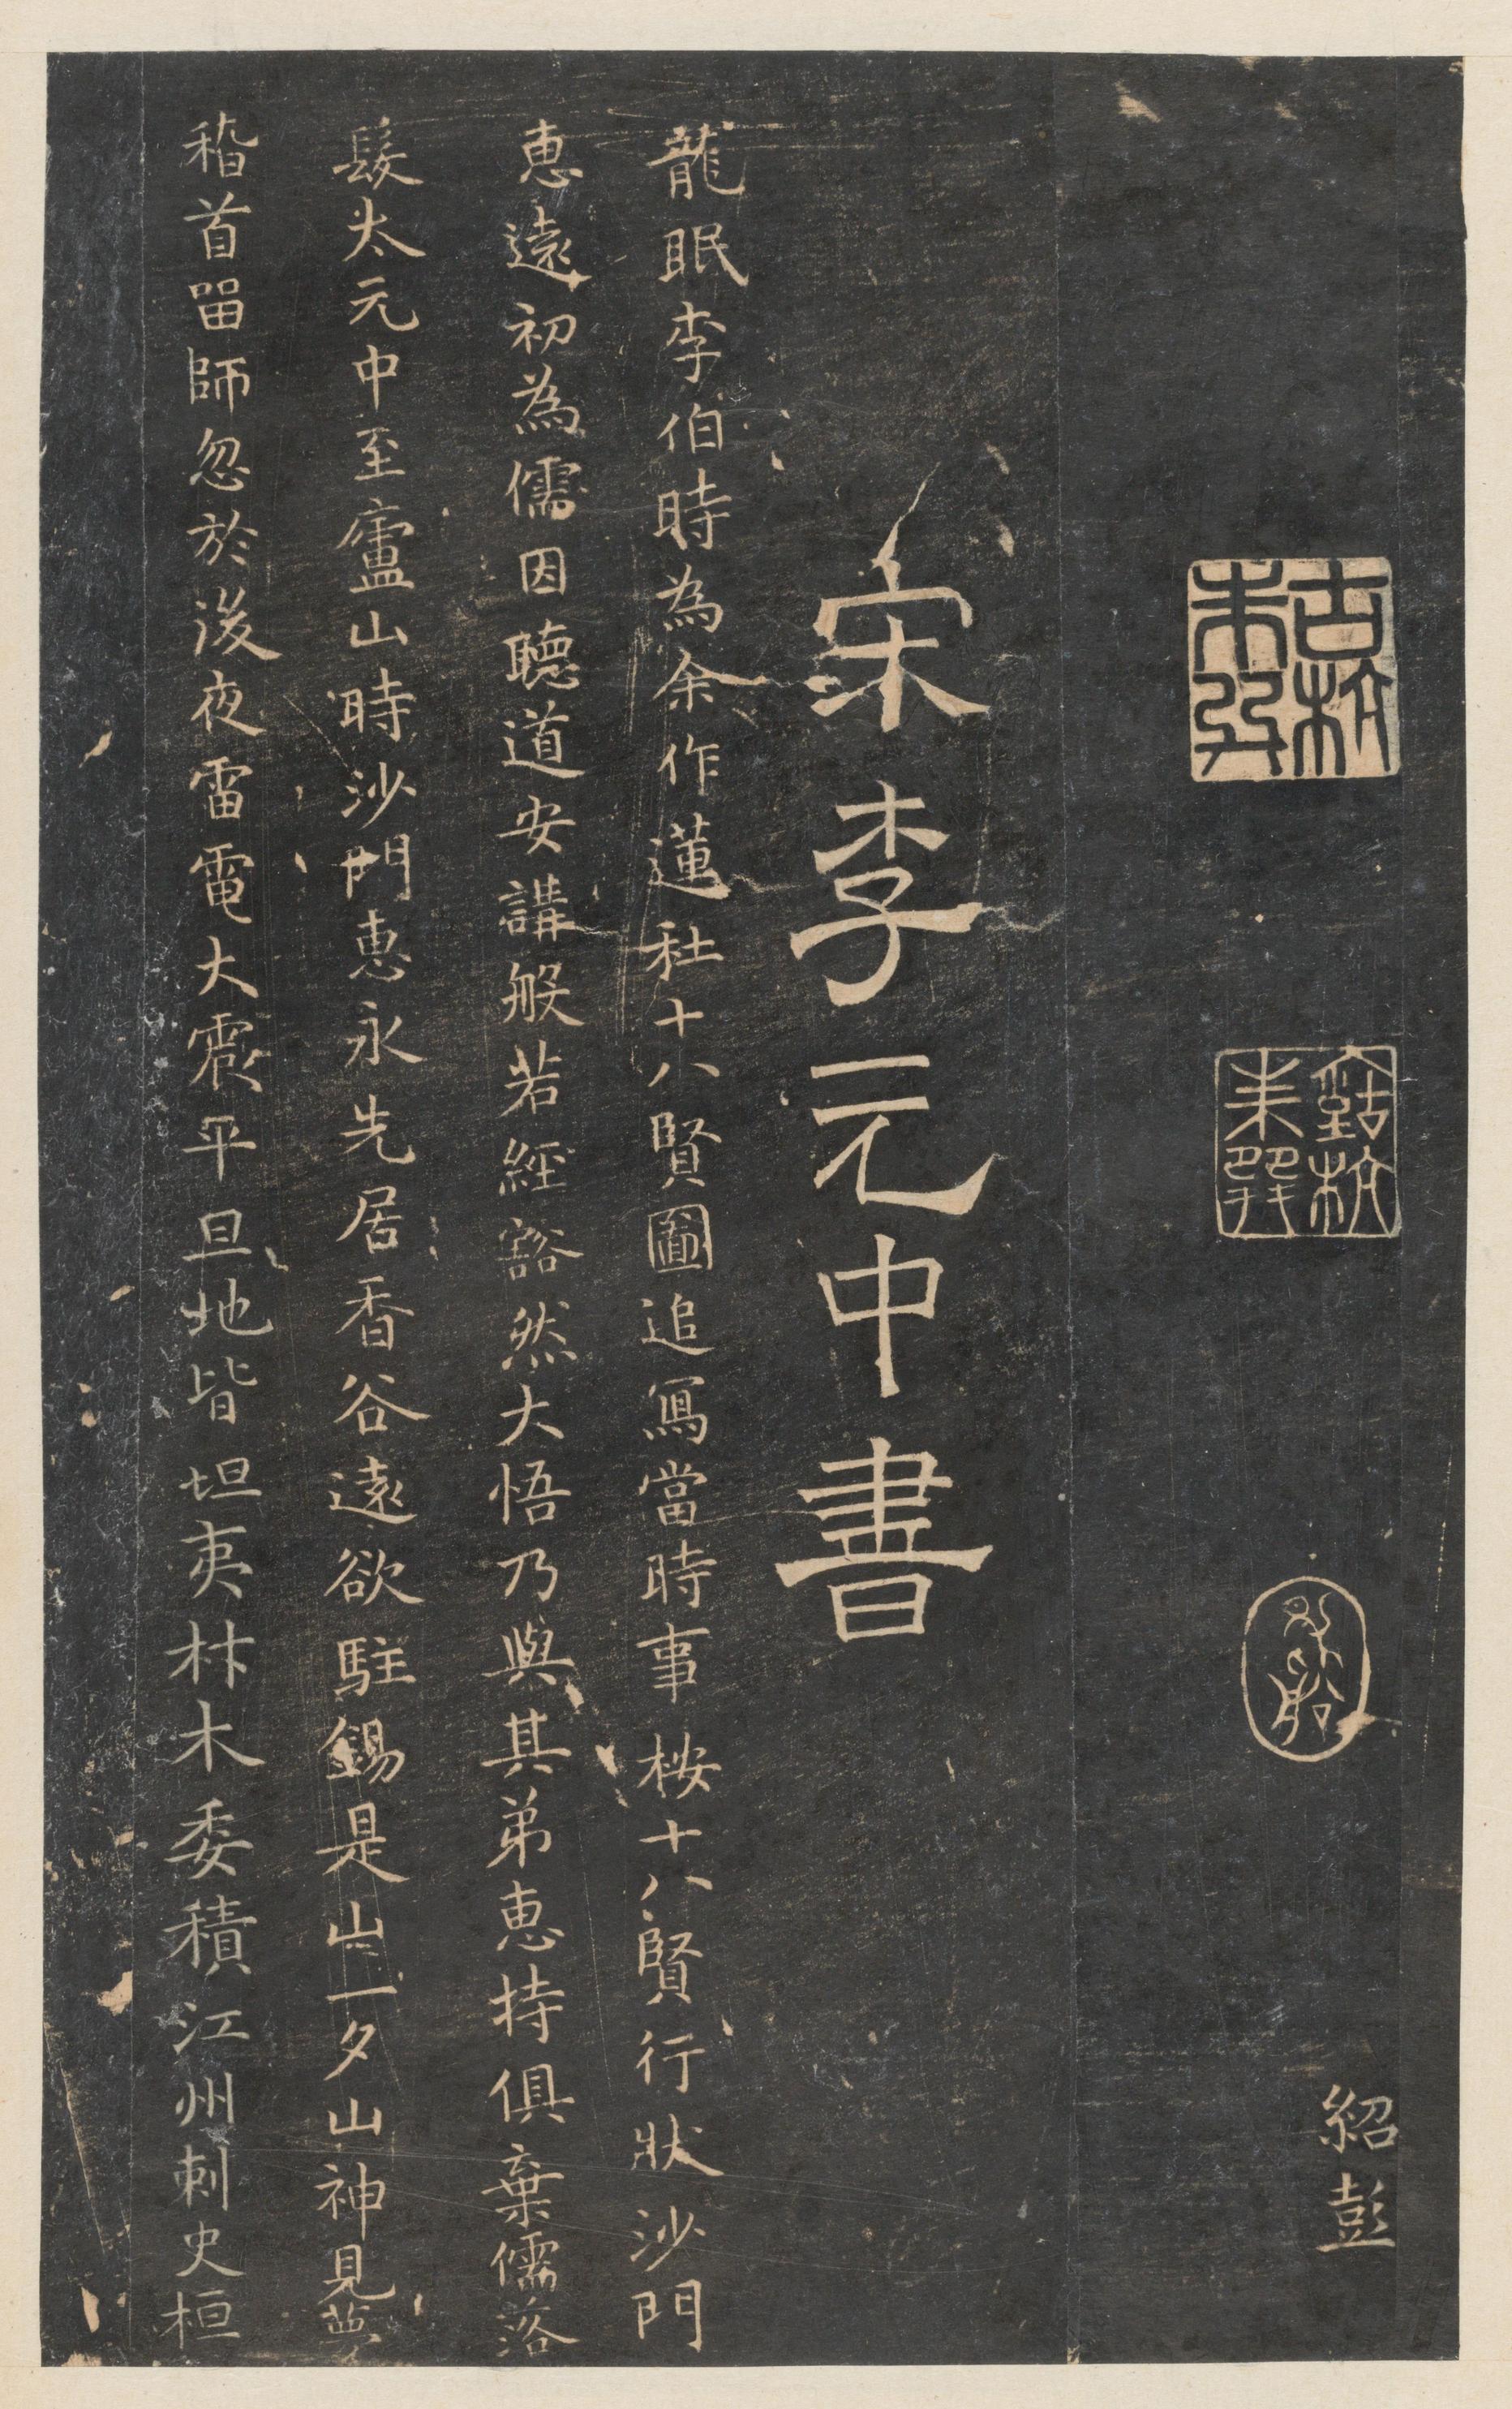 紹彭
宋李元中書
龍眠李伯時為余作蓮社十八賢圖追寫當時事桉十八賢行狀沙門
惠遠初為儒因聽道安講般若經豁然大悟乃與其弟惠持俱棄儒落
髮太元中至廬山時沙門惠永先居香谷遠欲駐錫是山一夕山神見夢
稽首留師忽於後夜雷電大震平旦地皆坦夷林木委積江州刺史桓